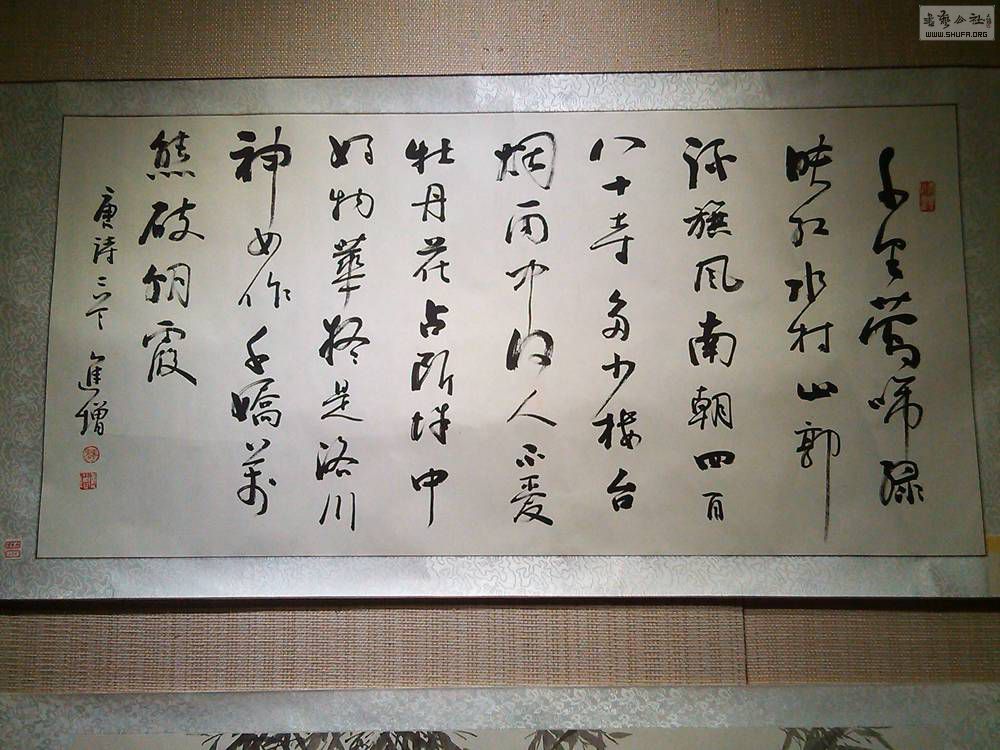 千里莺啼绿
映红水村山郭
酒旗风南朝四百
八十寺多少楼台
烟雨中何人不爱
牡丹花占断城中
好物華疑是洛川
神女作千嬌萬
態破朝霞
唐诗二首 進增
書藝公社
WWW.SHUFA.ORG